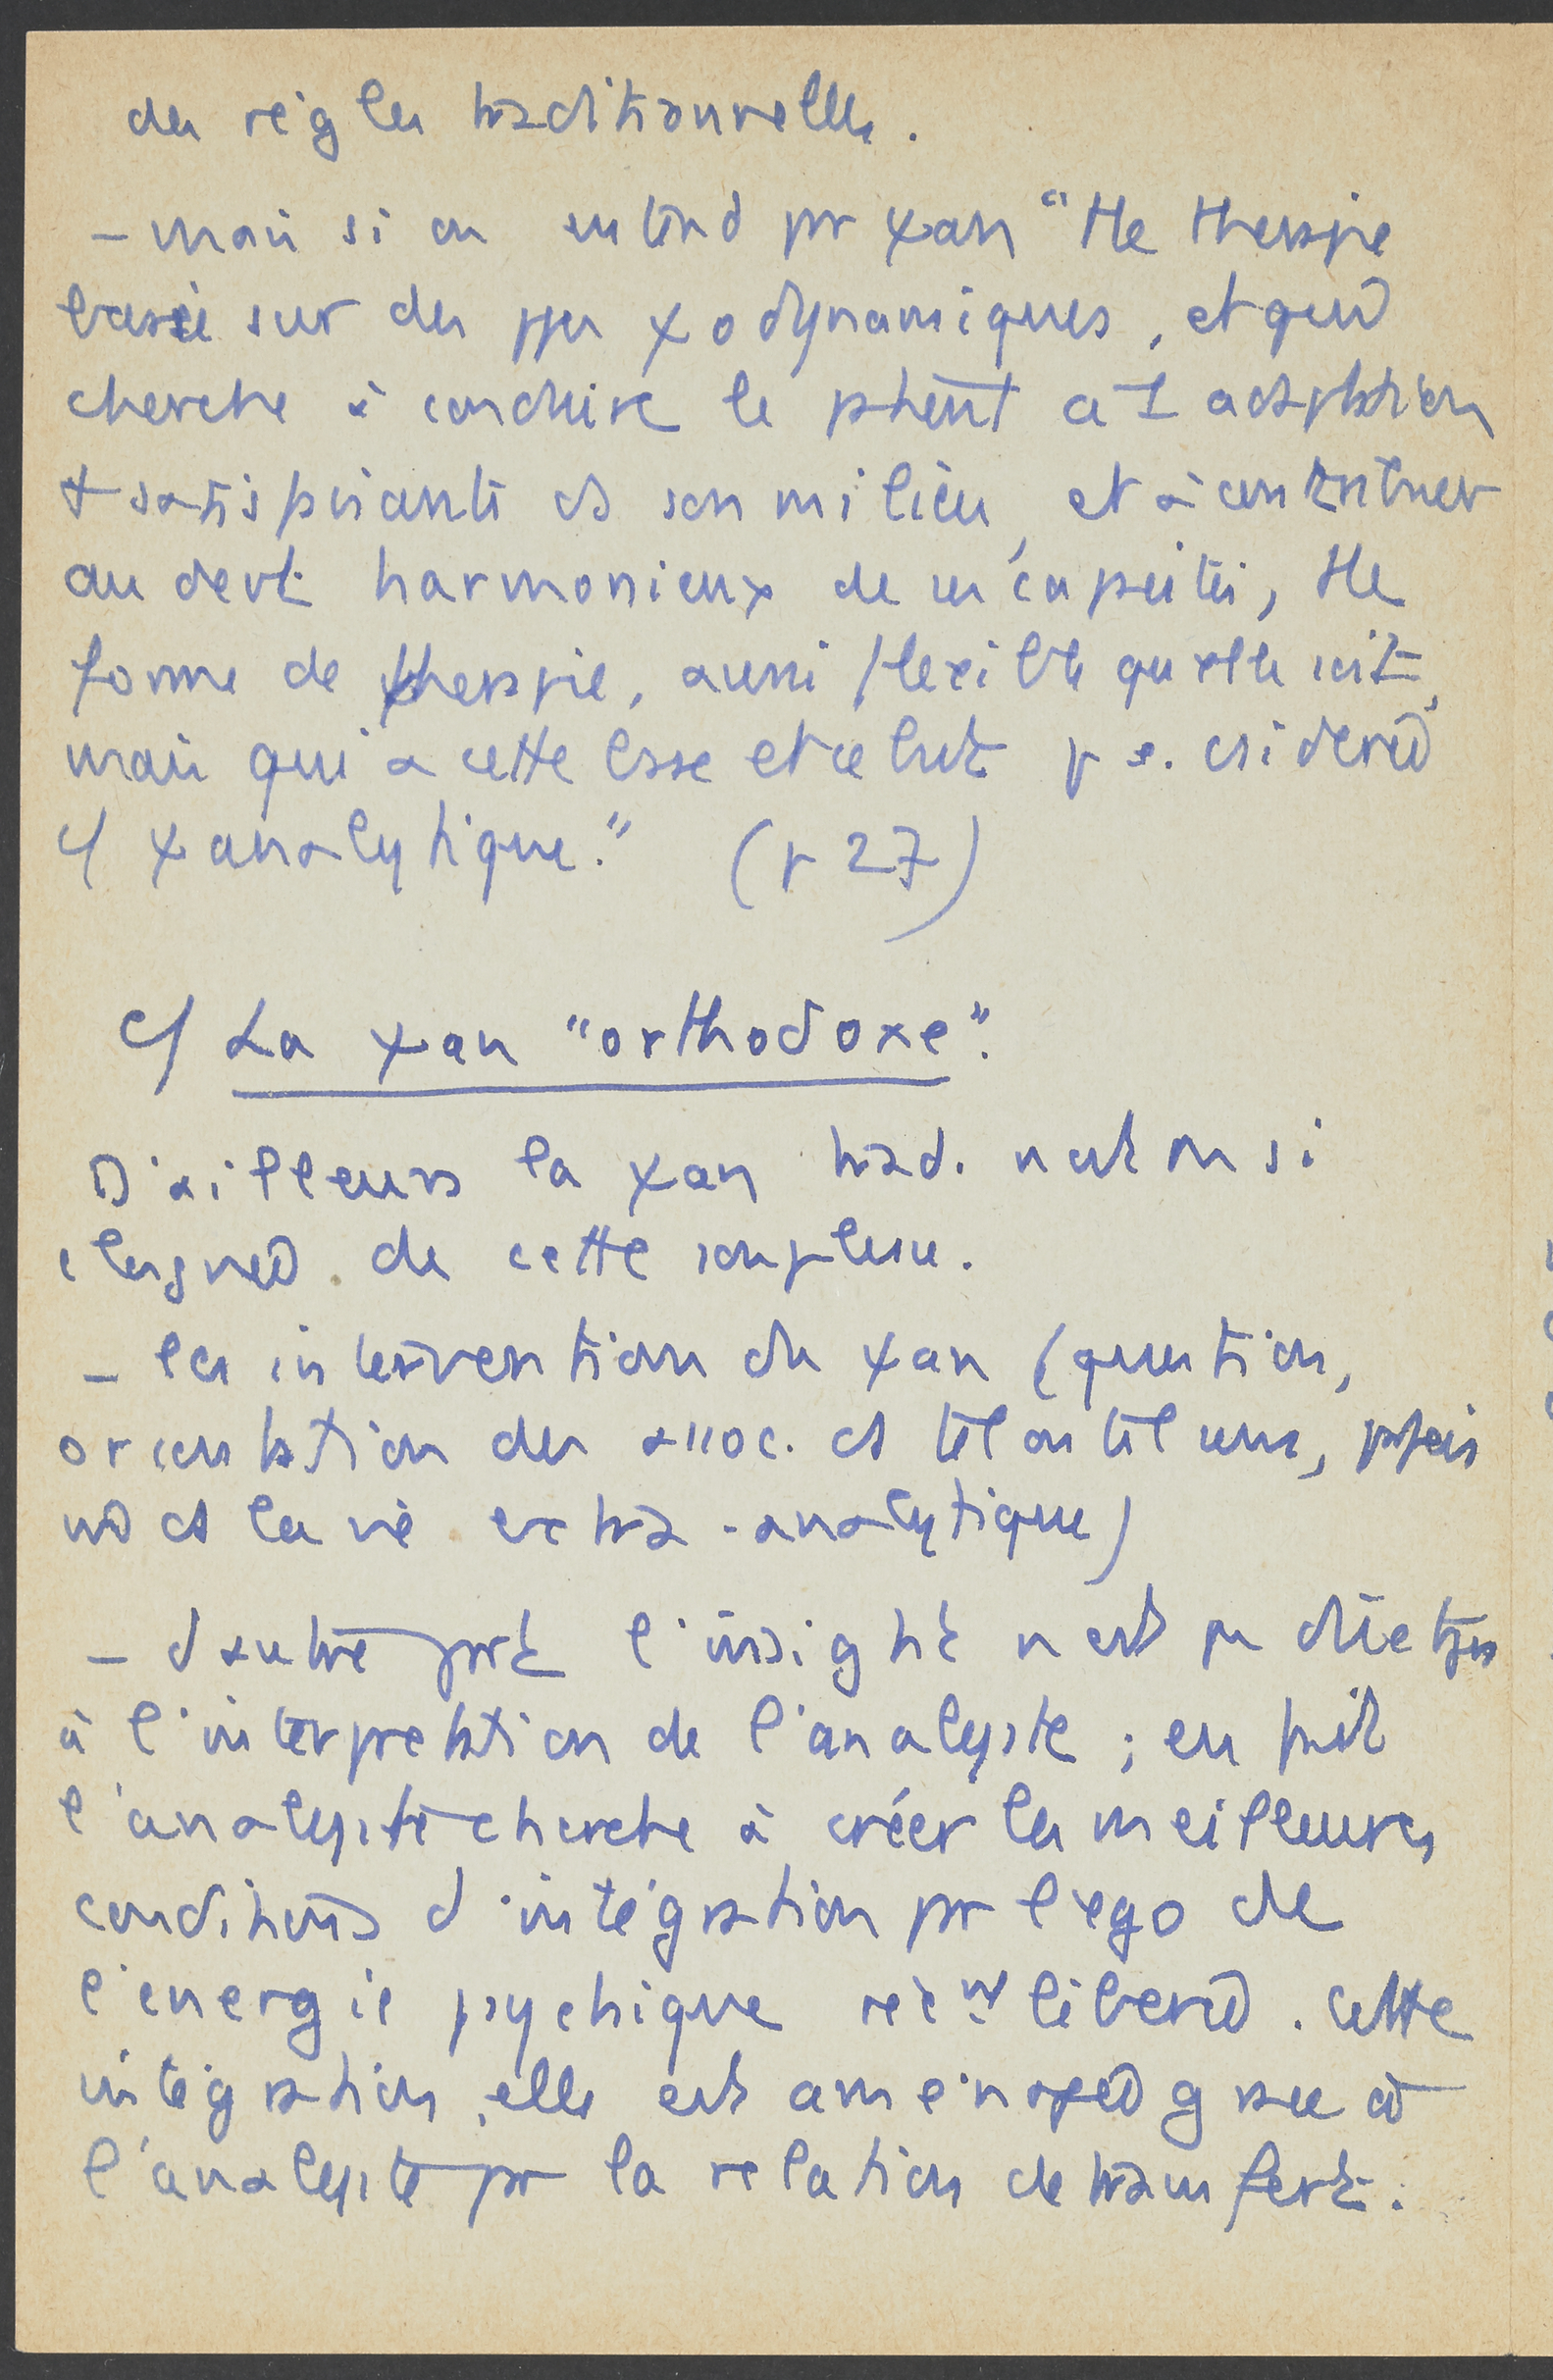 des règles traditionnelles.
- mais si on entend par ψan "tte therapie
basée sur des ppes ψodynamiques, et qui
cherche à conduire le patient à 1 adaptation
+ satisfaisante ds son milieu, et à contribuer
au devt harmonieux de ses capacités, tte
forme de therapie, aussi flexible qu elle soit,
mais qui a cette base et ce but p e. csidérée
c/ ψanalytique." (p 27)
c/ La ψan "orthodoxe".
D'ailleurs la ψan trad. n est pas si
eloignée de cette souplesse.
- les intervention du ψan (question,
orientation des assoc. ds tel ou tel sens,
ds la vie extra-analytique)
- d autre part l'insight n est pas
à l'interpretation de l'analyste ; en fait
l'analyste cherche à créer les meilleures
conditions d'intégration par l ego de
l'energie psychique libérée. cette
intégration, elle est à
l'analyste par la relation de transfert.